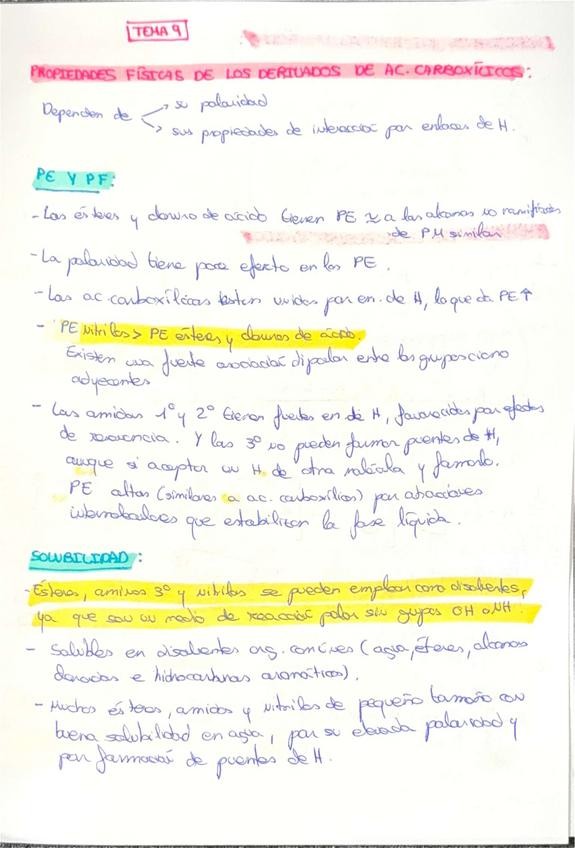 TEMA 9
PROPIEDADES FÍSICAS DE LOS DERIVADOS DE AC. CARBOXÍLICOS:
Dependen de → su polaridad
→ sus propiedades de interacción por enlaces de H.
PE Y PF:
- Los ésteres y cloruro de ácido tienen PE ≈ a los alcanos no ramificados
de PM similar
- La polaridad tiene poco efecto en los PE.
- Los ac. carboxílicos están unidos por en. de H, lo que da PE↑
- PE nitrilos > PE ésteres y cloruros de ácido.
Existen una fuerte asociación dipolar entre los grupos ciano
adyacentes
- Las amidas 1º y 2º tienen fuertes en de H, favorecidos por efectos
de resonancia. Y las 3º no pueden formar puentes de H,
aunque si aceptar un H de otra molécula y formarlo.
PE altos (similares a ac. carboxílicos) por atracciones
intermoleculares que estabilizan la fase líquida.
SOLUBILIDAD:
- Ésteres, aminas 3º y nitrilos se pueden emplear como disolventes,
ya que son un medio de reacción polar sin grupos OH o NH.
- Solubles en disolventes org. comunes (agua, éteres, alcanos
clorados e hidrocarburos aromáticos).
- Muchos ésteres, amidas y nitrilos de pequeño tamaño con
buena solubilidad en agua, por su elevada polaridad y
por formación de puentes de H.